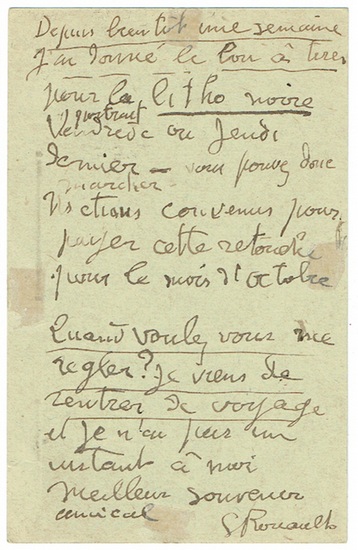 Depuis bientôt une semaine
J'ai donné le bon à tirer
pour la litho noire
portrait
Vendredi ou Jeudi
dernier — vous pouvez donc
marcher
Ns étions convenus pour
payer cette retouche
pour le mois d'octobre
Quand voulez vous me
regler? Je viens de
rentrer de voyage
et je n'ai pas un
instant à moi
Meilleur souvenir
amical
G Rouault